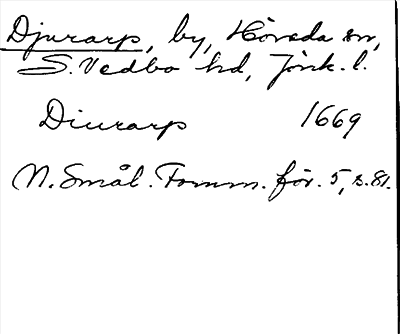 Djurarp, by, Hörsda sn,
S. Vedbo hd, Jönk. l.
Diurarp 1669
N. Smål. Fornm. för. 5, s. 81.